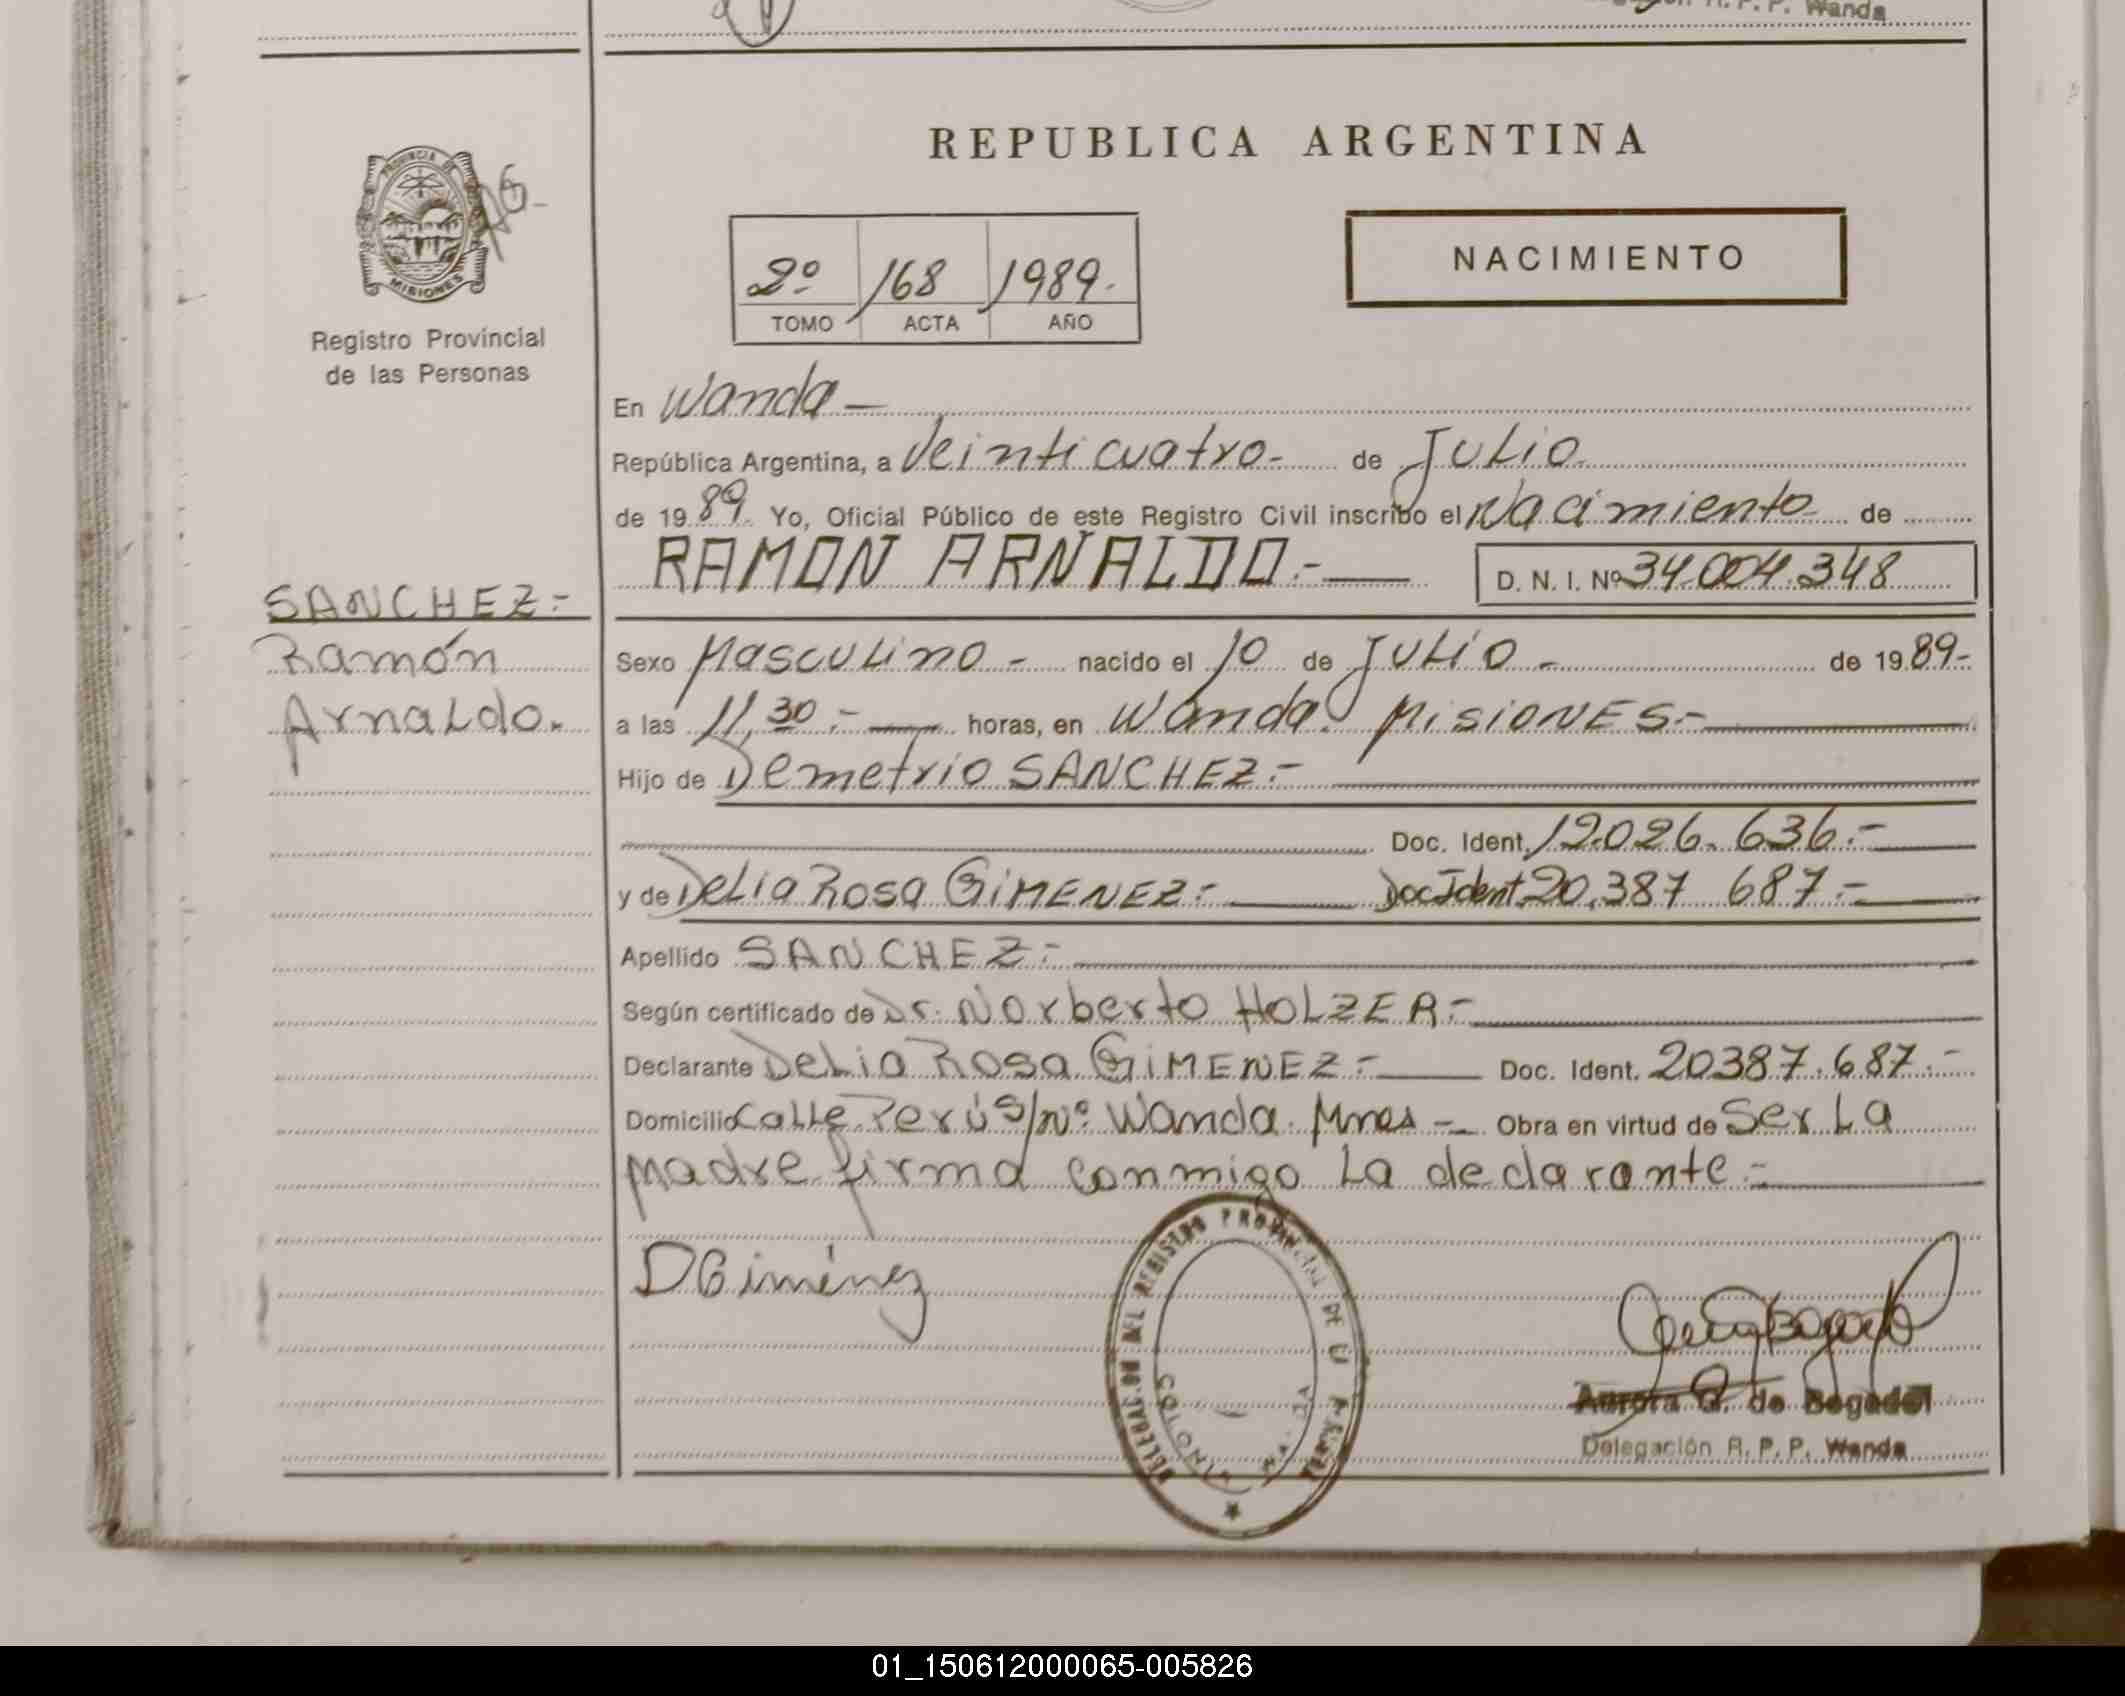 Delegación R. P. P. Wanda
REPUBLICA ARGENTINA
PROVINCIA DE
MISIONES
Registro Provincial
de las Personas
2º 168 1989.
TOMO ACTA AÑO
NACIMIENTO
En Wanda —
República Argentina, a Veinticuatro- de Julio
de 1989. Yo, Oficial Público de este Registro Civil inscribo el Nacimiento de
RAMON ARNALDO.-— D. N. I. Nº 34.004.348
SANCHEZ.-
Ramón
Arnaldo.
Sexo Masculino - nacido el 10 de Julio - de 1989-
a las 11,30.-— horas, en Wanda. MISIONES.-
Hijo de Demetrio SANCHEZ.-
Doc. Ident. 12.026.636.-
y de Delia Rosa GIMENEZ.-— Doc Ident. 20.387 687.-
Apellido SANCHEZ.-
Según certificado de Dr. Norberto HOLZER.-
Declarante Delia Rosa GIMENEZ.-— Doc. Ident. 20387.687.-
Domicilio Calle Perú S/Nº Wanda. Mnes -— Obra en virtud de Ser La
Madre firma conmigo La declarante.-
DGiménez
DELEGACION DEL REGISTRO PROVINCIAL DE LA S PERSONAS
COLONIA WANDA
Aurora G. de Bogado
Delegación R. P. P. Wanda
01_150612000065-005826